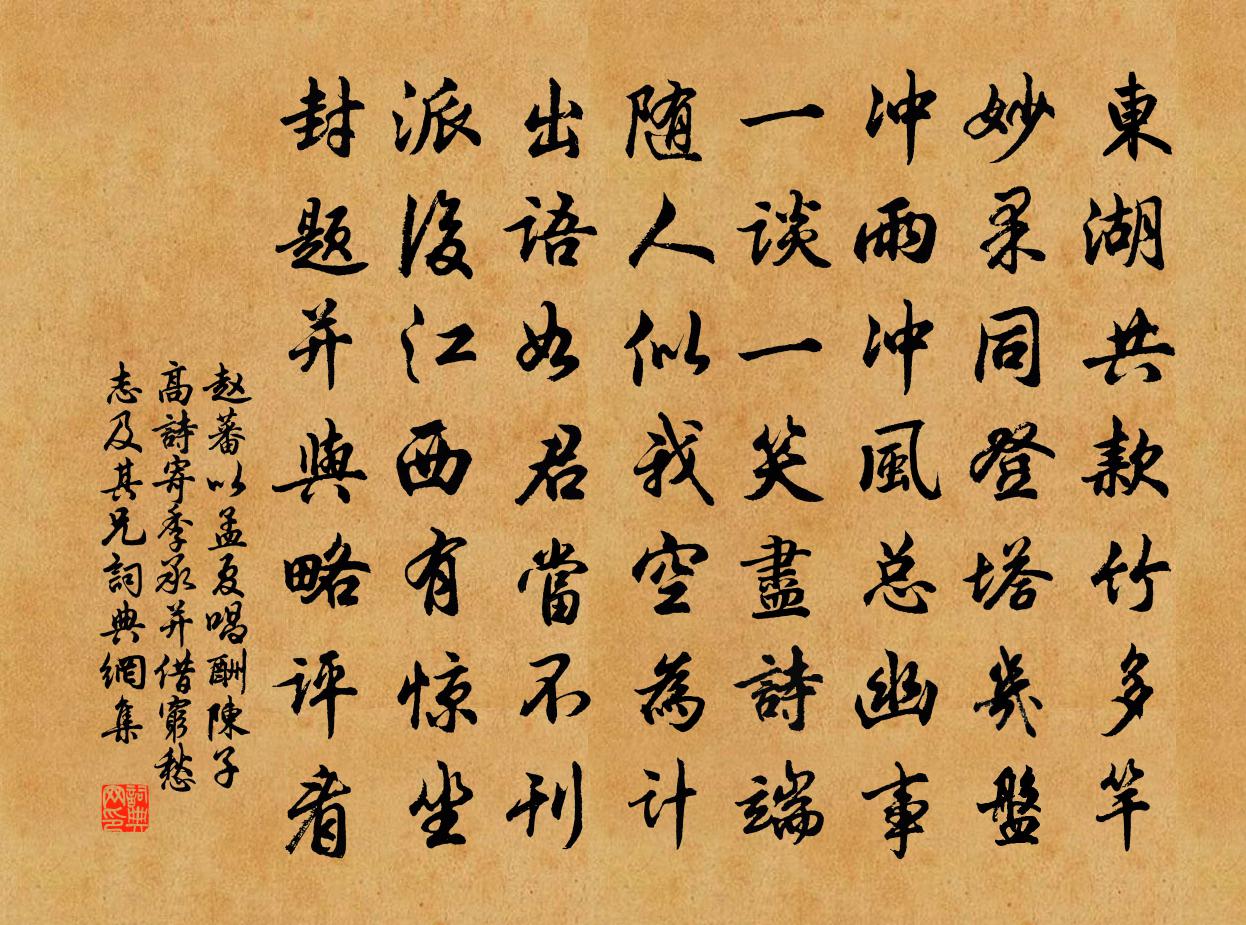 東湖共款竹多竿
妙果同登塔幾盤
冲雨冲風总幽事
一談一笑盡詩端
随人似我空為计
出语如君當不刊
派後江西有惊坐
封题并與略评看
赵蕃以孟夏唱酬陳子
高詩寄季承并借窮愁
志及其兄詞典網集
詞典网印